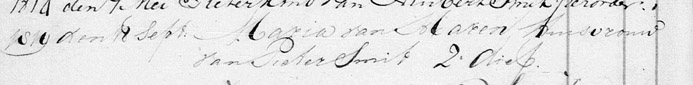 1819 den 4 Mei Pieter kind van Huibert Smit
1819 den 8 Sept. Maria van Maren huisvrouw
van Pieter Smit 2 diep.